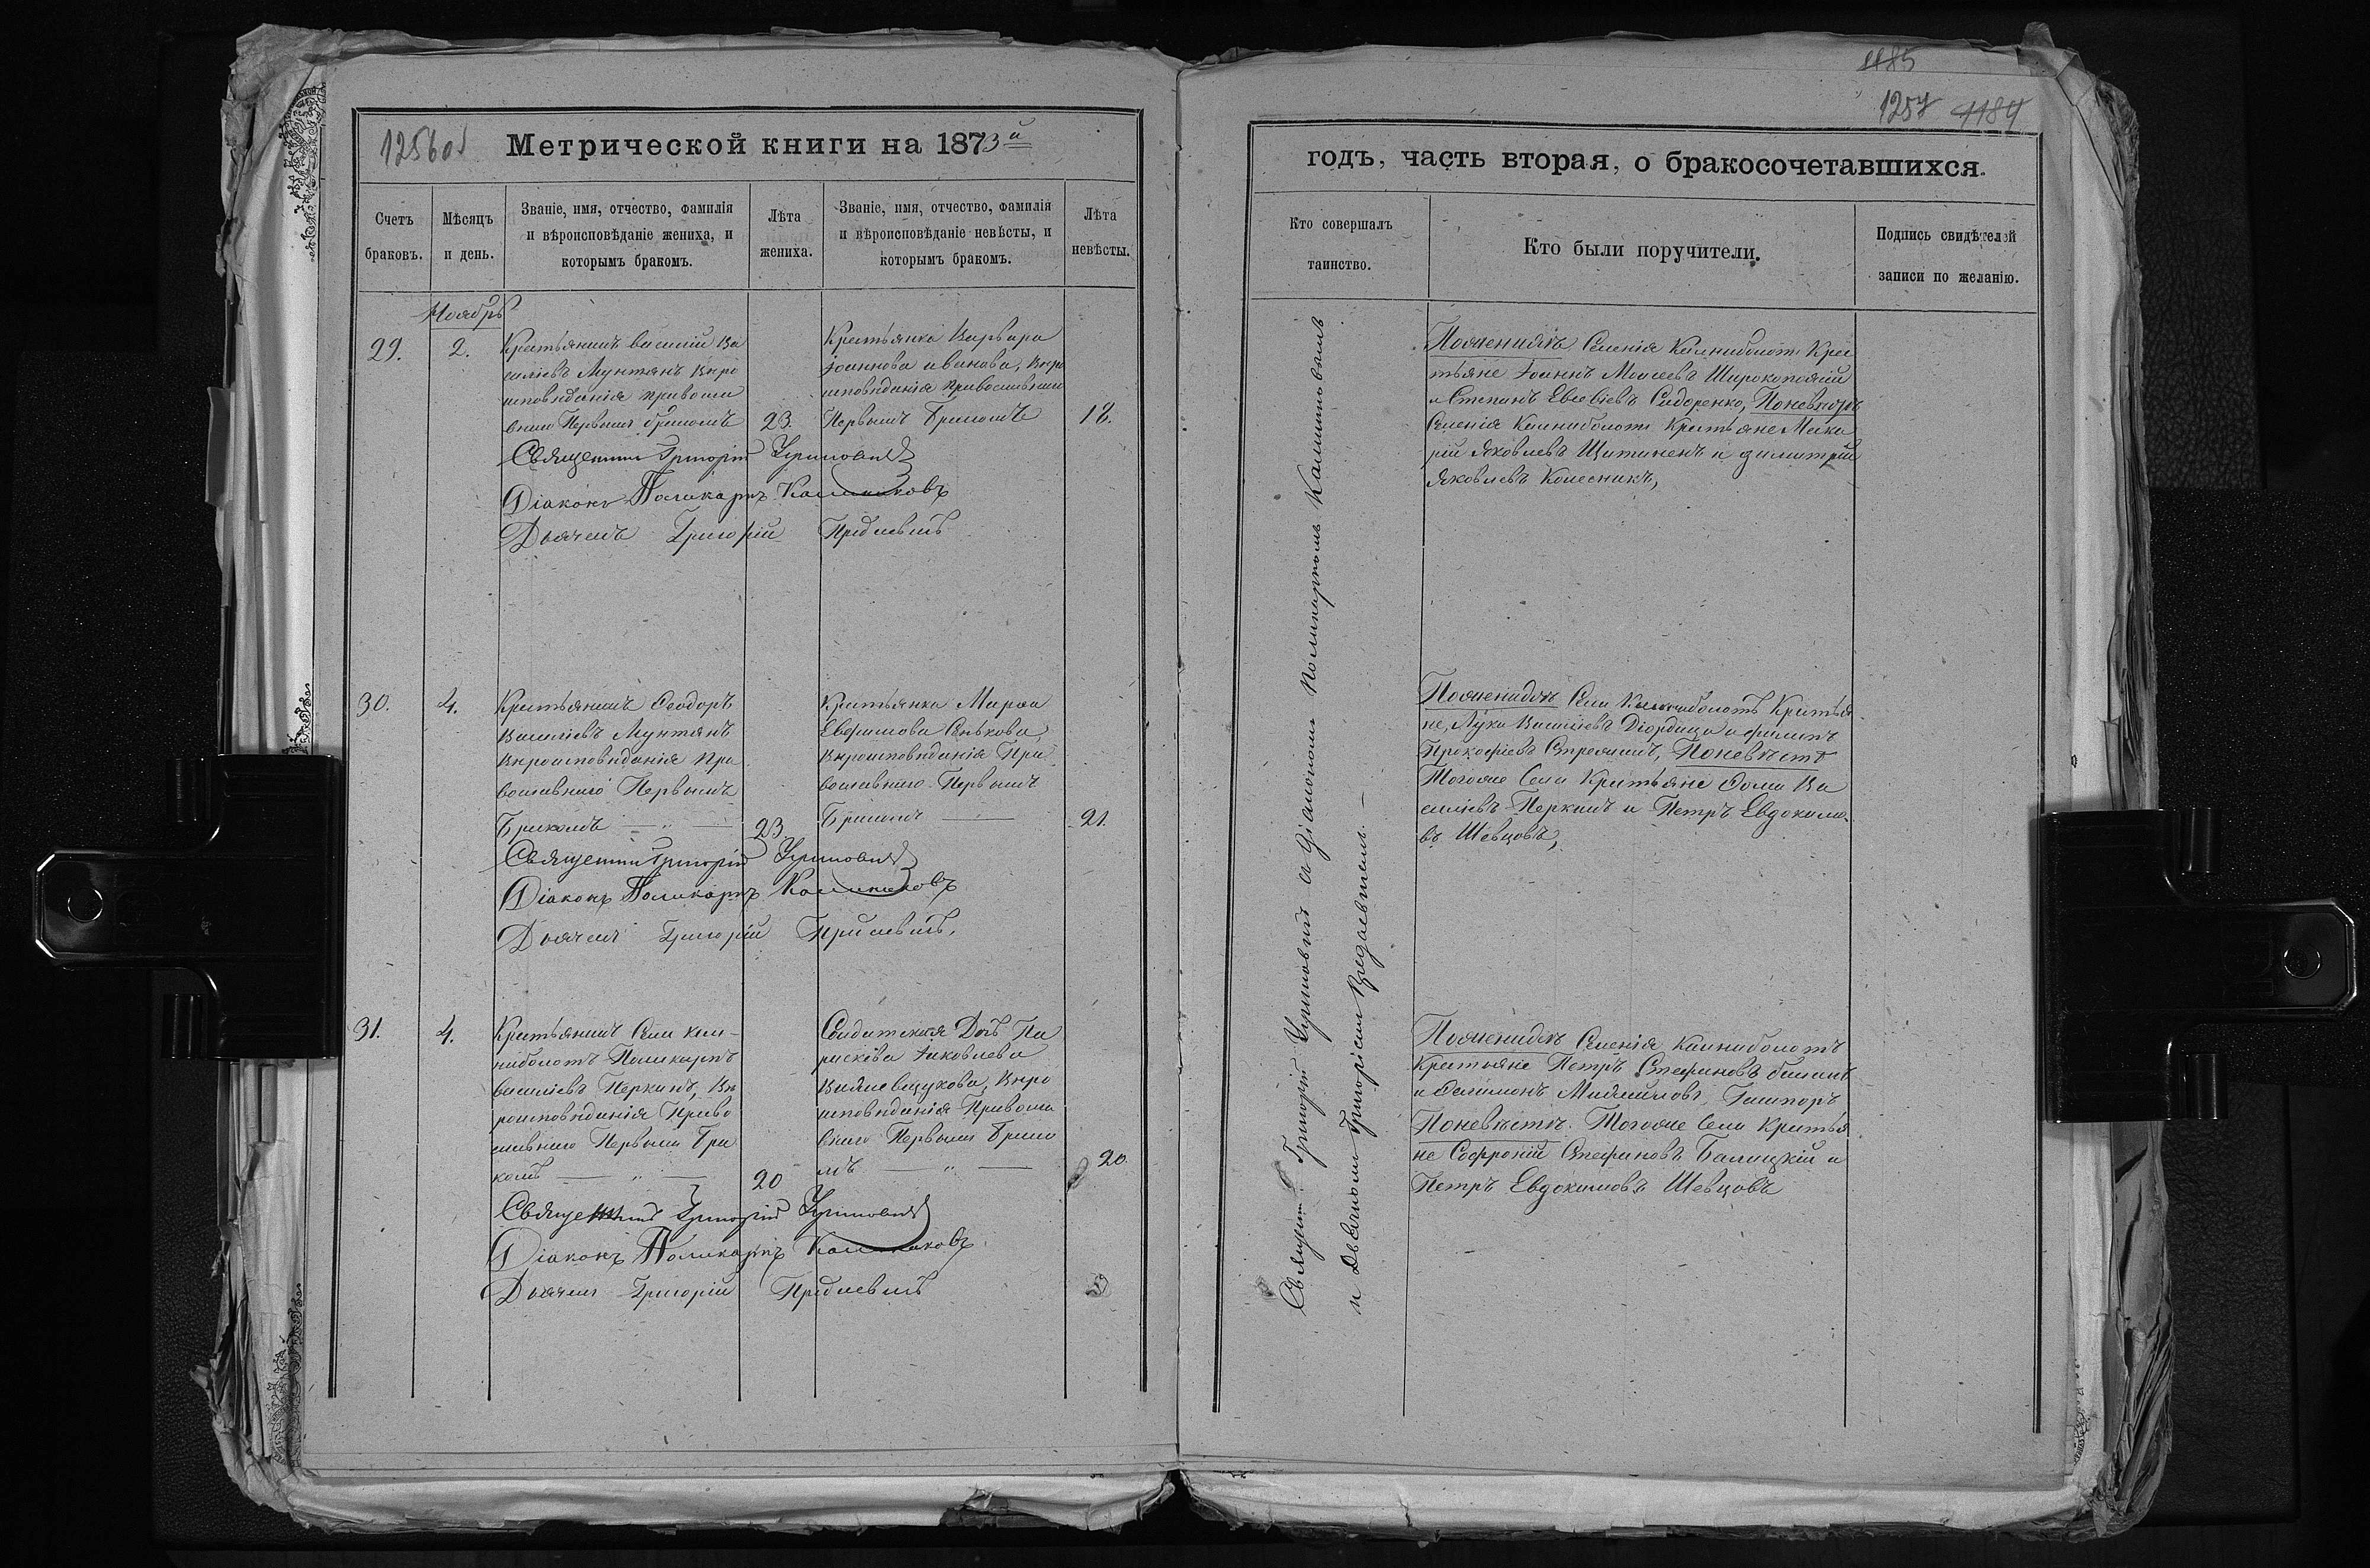 1256об
Метрической книги на 1873й
Счетъ браковъ.
Мѣсяцъ и день.
Званіе, имя, отчество, фамилія
и вѣроисповѣданіе жениха, и
которымъ бракомъ.
Лѣта жениха.
Званіе, имя, отчество, фамилія
и вѣроисповѣданіе невѣсты, и
которымъ бракомъ.
Лѣта невѣсты.
Ноябрь
29.
2.
Крестьянинъ василій Ва
силіевъ Мунтянъ вѣро
исповѣданія православ
внаго Первымъ бракомъ
23.
Крестьянка Варвара
Іоаннова иванова, вѣро
исповѣданія православнаго
Первымъ бракомъ
18.
Священник Григорій
Діаконъ Поликарпъ Калинниковъ
Дьячекъ Григорій
30.
4.
Крестьянинъ Ѳеодоръ
Василіевъ Мунтянъ
вѣроисповѣданія пра
вославнаго Первымъ
Бракомъ — „ —
23
Крестьянка Марѳа
Евфимова Сенькова,
вѣроисповѣданія Пра
вославнаго Первымъ
Бракомъ —
21.
Священник Григорій
Діаконъ Поликарпъ Калинниковъ
Дьячекъ Григорій
31.
4.
Крестьянинъ Села Кал-
ниболотъ Поликарпъ
василіевъ Перкинъ, вѣ
роисповѣданія Право
славнаго Первымъ Бра
комъ — „ —
20
Солдатская Дочь Па
раскева Іаковлева
вѣро
исповѣданія Правосла
внаго Первымъ Брако
мъ — „ —
20.
Священникъ Григорій
Діаконъ Поликарпъ Калинниковъ
Дьячекъ Григорій
1185
1257 1184
годъ, часть вторая, о бракосочетавшихся.
Кто совершалъ
таинство.
Кто были поручители.
Подпись свидѣтелей
записи по желанію.
Григорій съ діакономъ Поликарпомъ Калинниковымъ
и Дьячкомъ Григоріемъ
Поженихѣ Селенія Калниболотъ Крес
тьяне Іоаннъ Моисеевъ Широкопоясъ
и Степанъ Евсевіевъ Сидоренко, Поневѣстѣ
Селенія Калниболотъ Крестьяне Мака
рій Яковлевъ и димитрій
Яковлевъ Колесникъ,
Поженихѣ Села Калниболотъ Крестья
не, Лука Василіевъ Діордица и филипъ
Прокофіевъ Поневѣстѣ
Тогоже Села Крестьяне Ѳома Ва
силіевъ Перкинъ и Петръ Евдокимо
въ Шевцовъ,
Поженихѣ Селенія Калниболотъ
Крестьяне Петръ Стефановъ
и Филимонъ Михайловъ
Поневѣстѣ. Тогоже Села Крестья
не Софроній Стефановъ Балицкій и
Петръ Евдокимовъ Шевцовъ